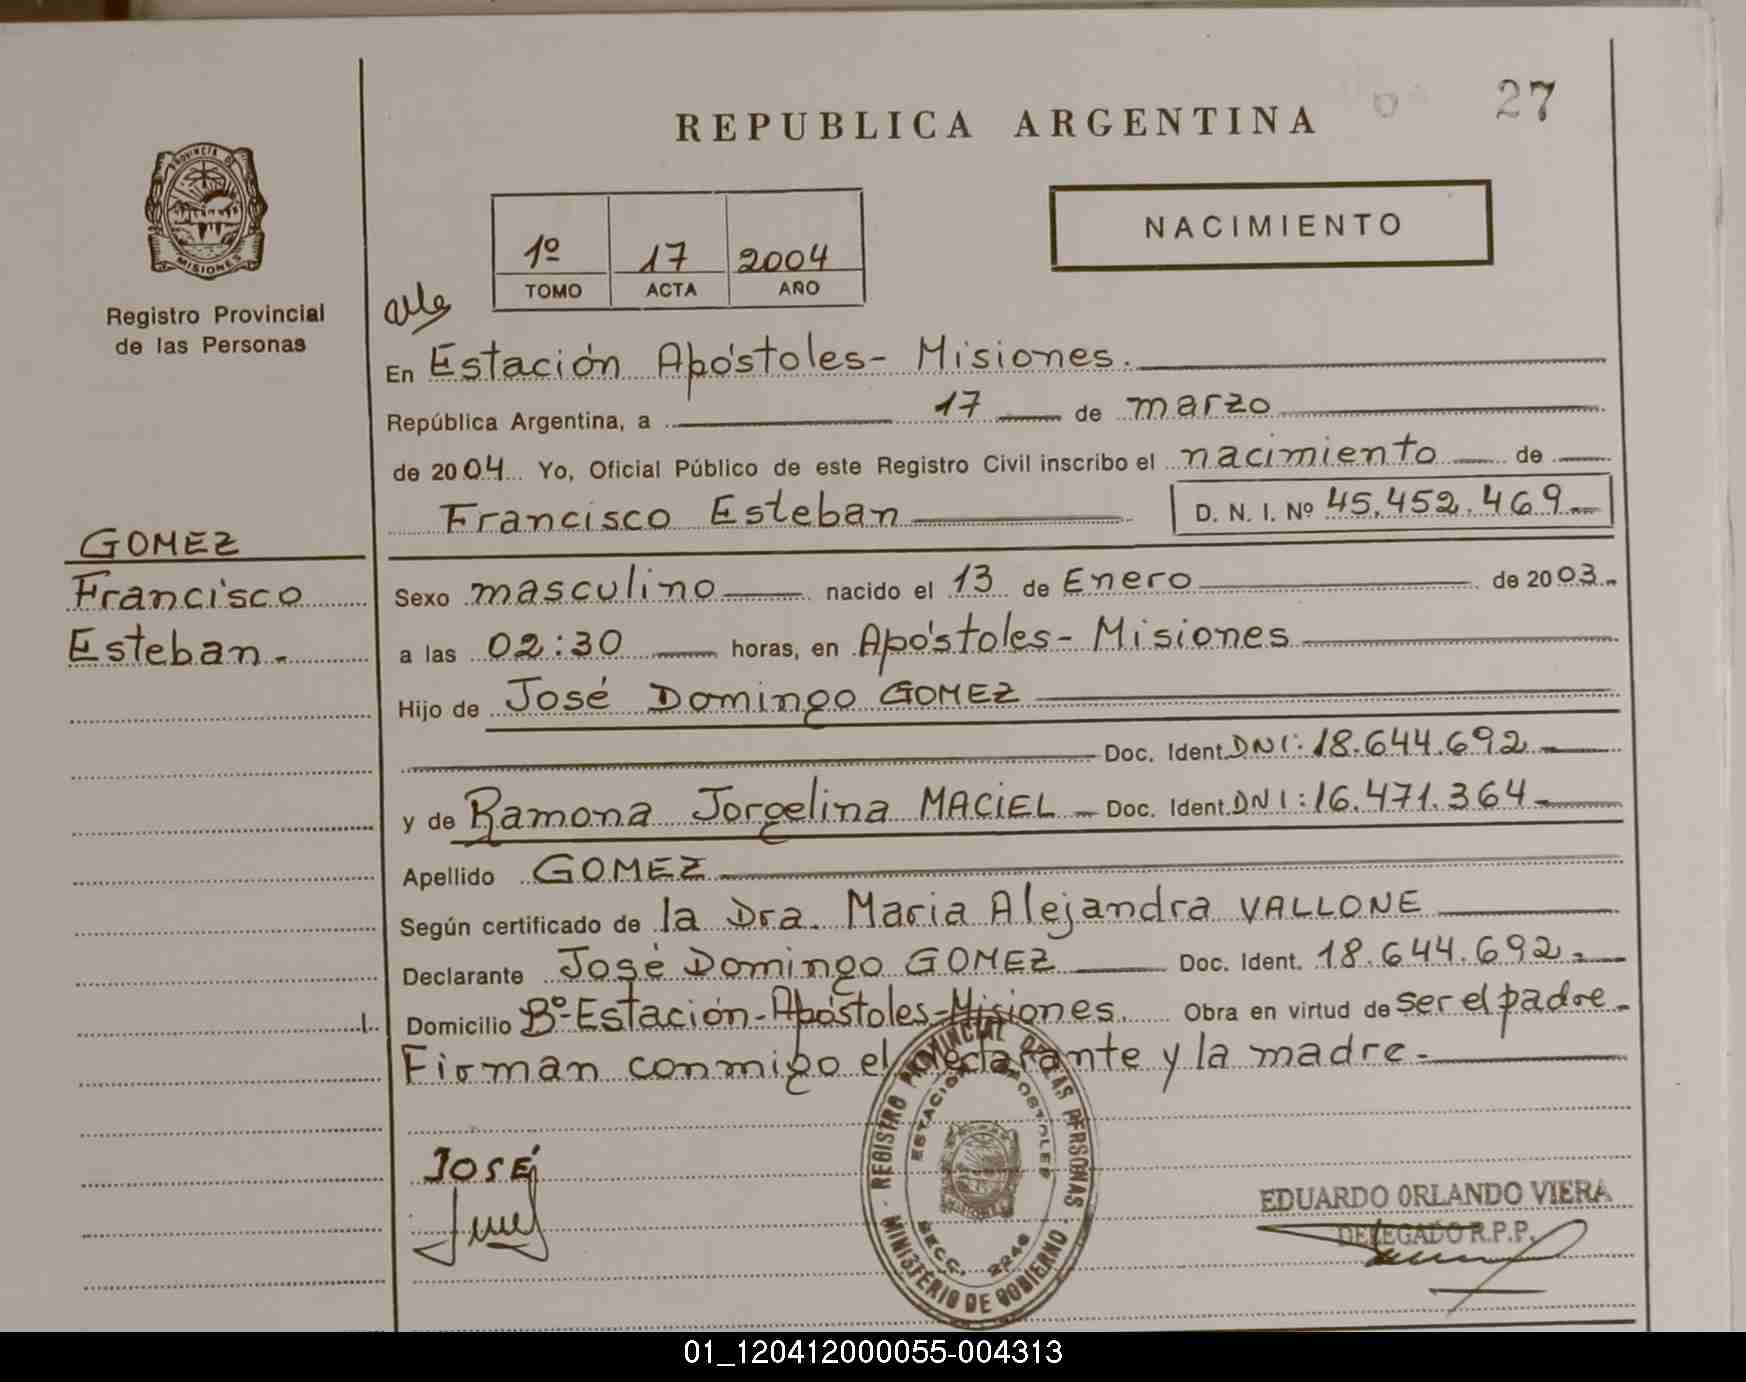 27
REPUBLICA ARGENTINA
PROVINCIA DE
MISIONES
Registro Provincial
de las Personas
1º 17 2004
TOMO ACTA AÑO
NACIMIENTO
En Estación Apóstoles- Misiones.
República Argentina, a 17 de marzo
de 2004 Yo, Oficial Público de este Registro Civil inscribo el nacimiento de
Francisco Esteban D. N. I. Nº 45.452.469
GOMEZ
Francisco
Esteban.-
Sexo masculino nacido el 13 de Enero de 2003.-
a las 02:30 horas, en Apóstoles- Misiones
Hijo de José Domingo GOMEZ
Doc. Ident. DNI: 18.644.692
y de Ramona Jorgelina MACIEL Doc. Ident. DNI: 16.471.364
Apellido GOMEZ
Según certificado de la Dra. Maria Alejandra VALLONE
Declarante José Domingo GOMEZ Doc. Ident. 18.644.692.-
Domicilio Bº Estación-Apóstoles-Misiones. Obra en virtud de ser el padre.
Firman conmigo el declarante y la madre.-
REGISTRO PROVINCIAL DE LAS PERSONAS
ESTACION APOSTOLES
SECC. 2246
MINISTERIO DE GOBIERNO
JOSÉ
EDUARDO ORLANDO VIERA
DELEGADO R.P.P.
01_120412000055-004313